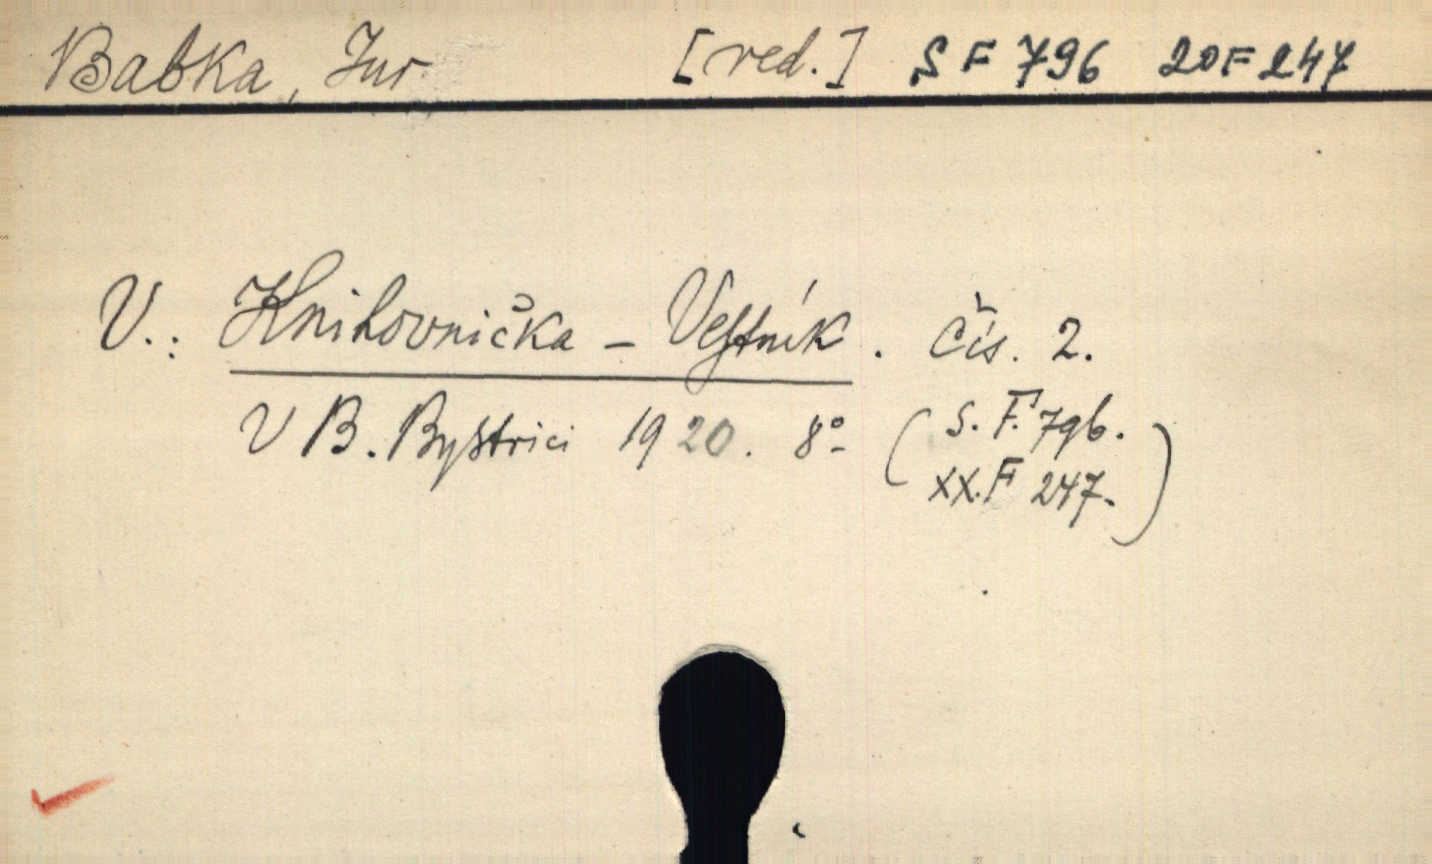 Babka, Jur [red.] SF 796 20F247
V.: Knihovnička - Vestník. čís. 2.
V B. Bystrici 1920. 8°
(S. F. 796.
XX.F 247.)